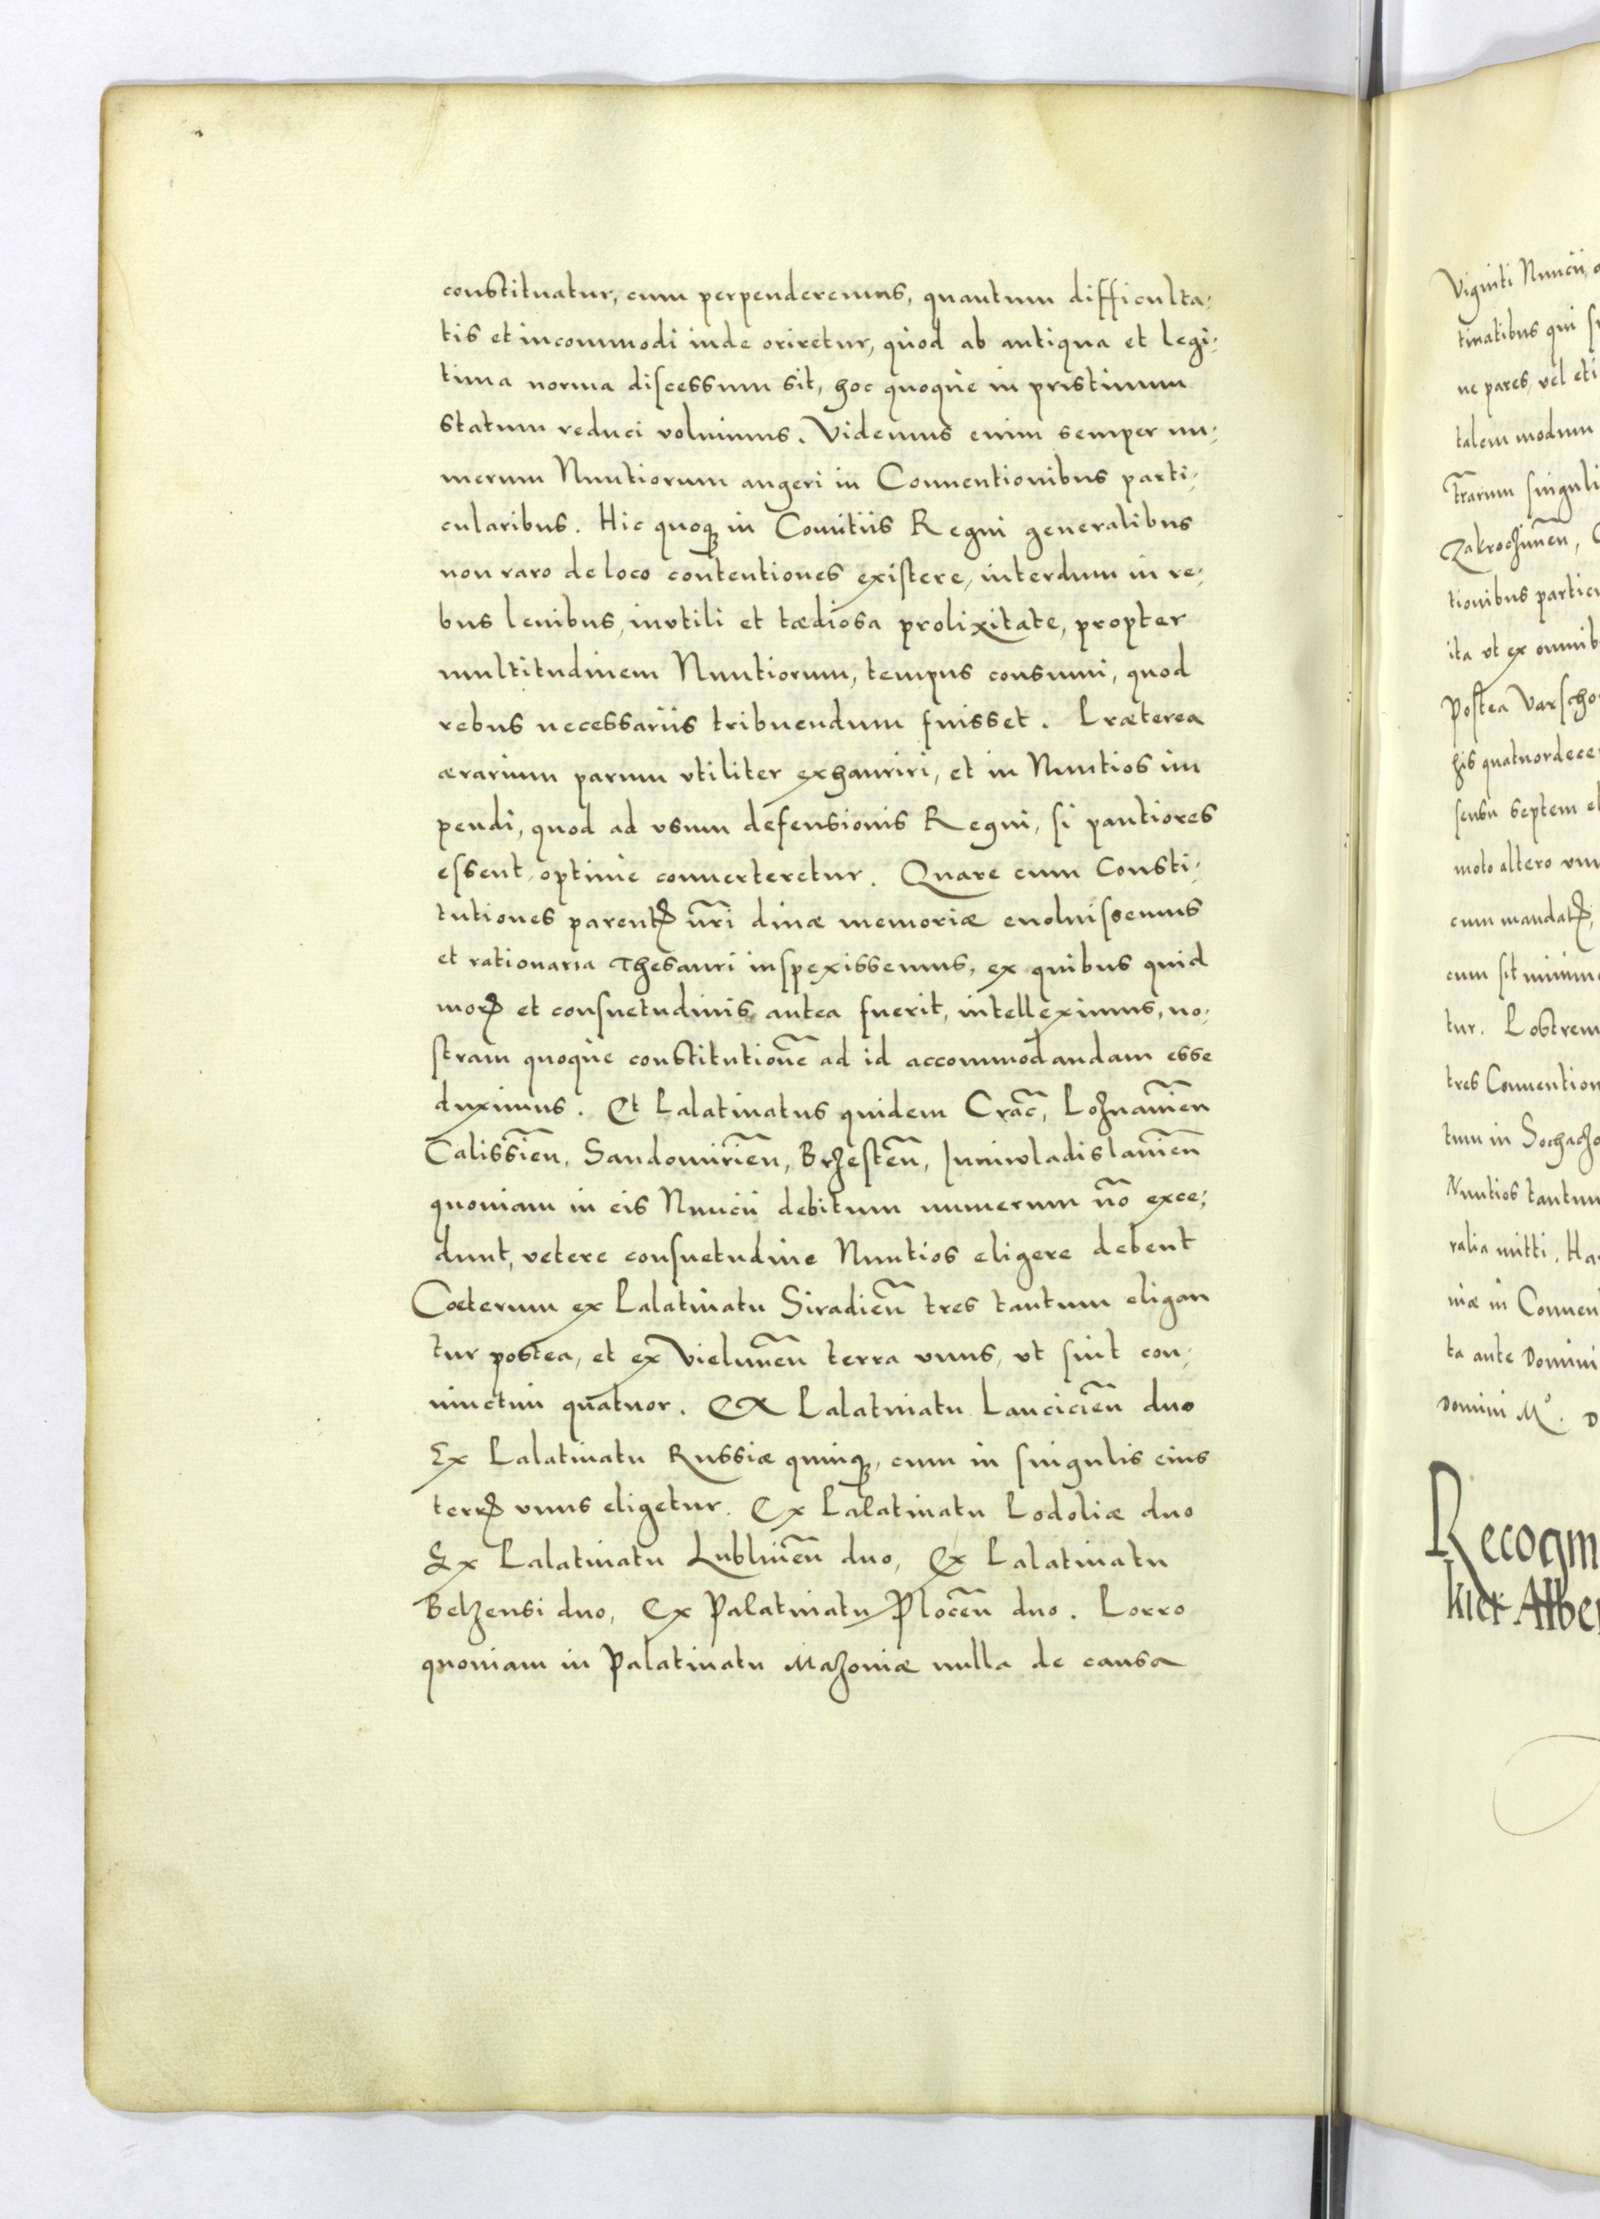 constituatur, cum perpenderemus, quantum difficulta-
tis et incommodi inde oriretur, quod ab antiqua et legi-
tima norma discessum sit, hoc quoque in pristinum
statum reduci voluimus. Videmus enim semper nu-
merum Nuntiorum augeri in Conuentionibus parti-
cularibus. Hic quoq; in Comitiis Regni generalibus
non raro de loco contentiones existere, interdum in re-
bus leuibus, invtili et tædiosa prolixitate, propter
multitudinem Nuntiorum, tempus consumi, quod
rebus necessariis tribuendum fuisset. Præterea
ærarium parum vtiliter exhauriri, et in Nuntios im
pendi, quod ad vsum defensionis Regni, si pautiores
essent, optime conuerteretur. Quare cum Consti-
tutiones parentꝭ nr̃i diuæ memoriæ euoluissemus
et rationaria Thesauri inspexissemus, ex quibus quid
morꝭ et consuetudinis antea fuerit, intelleximus, no-
stram quoque constitutionẽ ad id accommodandam esse
duximus. Et Palatinatus quidem Crac̃, Poznanieñ
Calissieñ, Sandomirieñ, Brzesteñ, Iuniwladislauieñ
quoniam in eis Nuncii debitum numerum nõ exce-
dunt, vetere consuetudine Nuntios eligere debent
Cæterum ex Palatinatu Siradieñ tres tantum eligan
tur postea, et ex Vieluneñ terra vnus, vt sint con-
iunctim quatuor. Ex Palatinatu Lancicieñ duo
Ex Palatinatu Russiæ quinq;, cum in singulis eius
terrꝭ vnus eligetur. Ex Palatinatu Podoliæ duo
Ex Palatinatu Lublineñ duo, Ex Palatinatu
Belzensi duo, Ex Palatinatu Ploceñ duo. Porro
quoniam in Palatinatu Mazoniæ nulla de causa
Viginti Nuncii,
tinatibus qui
ne pares, vel eti
talem modum
Tr̃arum singuli
Zakrocimeñ,
tionibus particu
ita vt ex omnib
Postea Varscho
his quatuordece
sensu septem et
moto altero vnu
cum mandatꝭ,
cum sit minime
tur. Postrem
tres Conuention
tum in Sochaczo
Nuntios tantum
ralia mitti. Ha
niæ in Conuen
ta ante Domini
Domini M°. D
Recogni
kier Alber